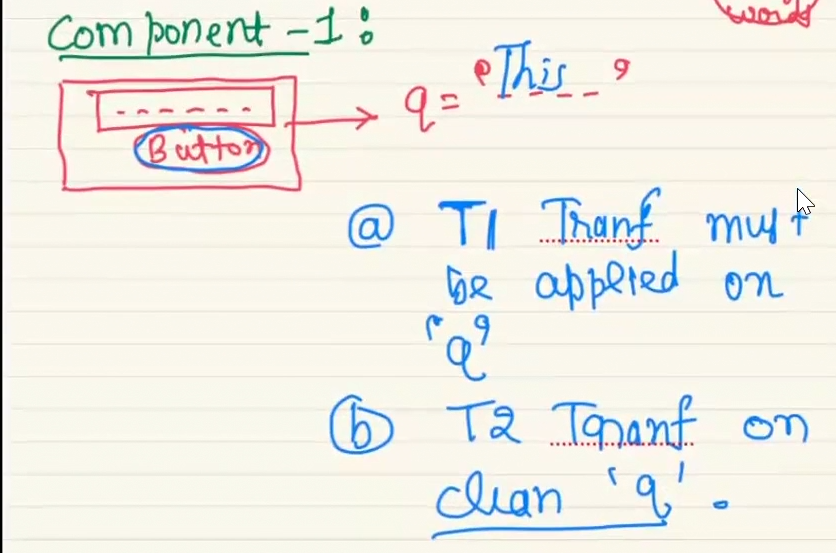 words
Component - 1 :
- - - - - - -
Button
q = "This _ _ _"
(a) T1 Tranf must
be applied on
'q'
(b) T2 Tranf on
clean 'q' .